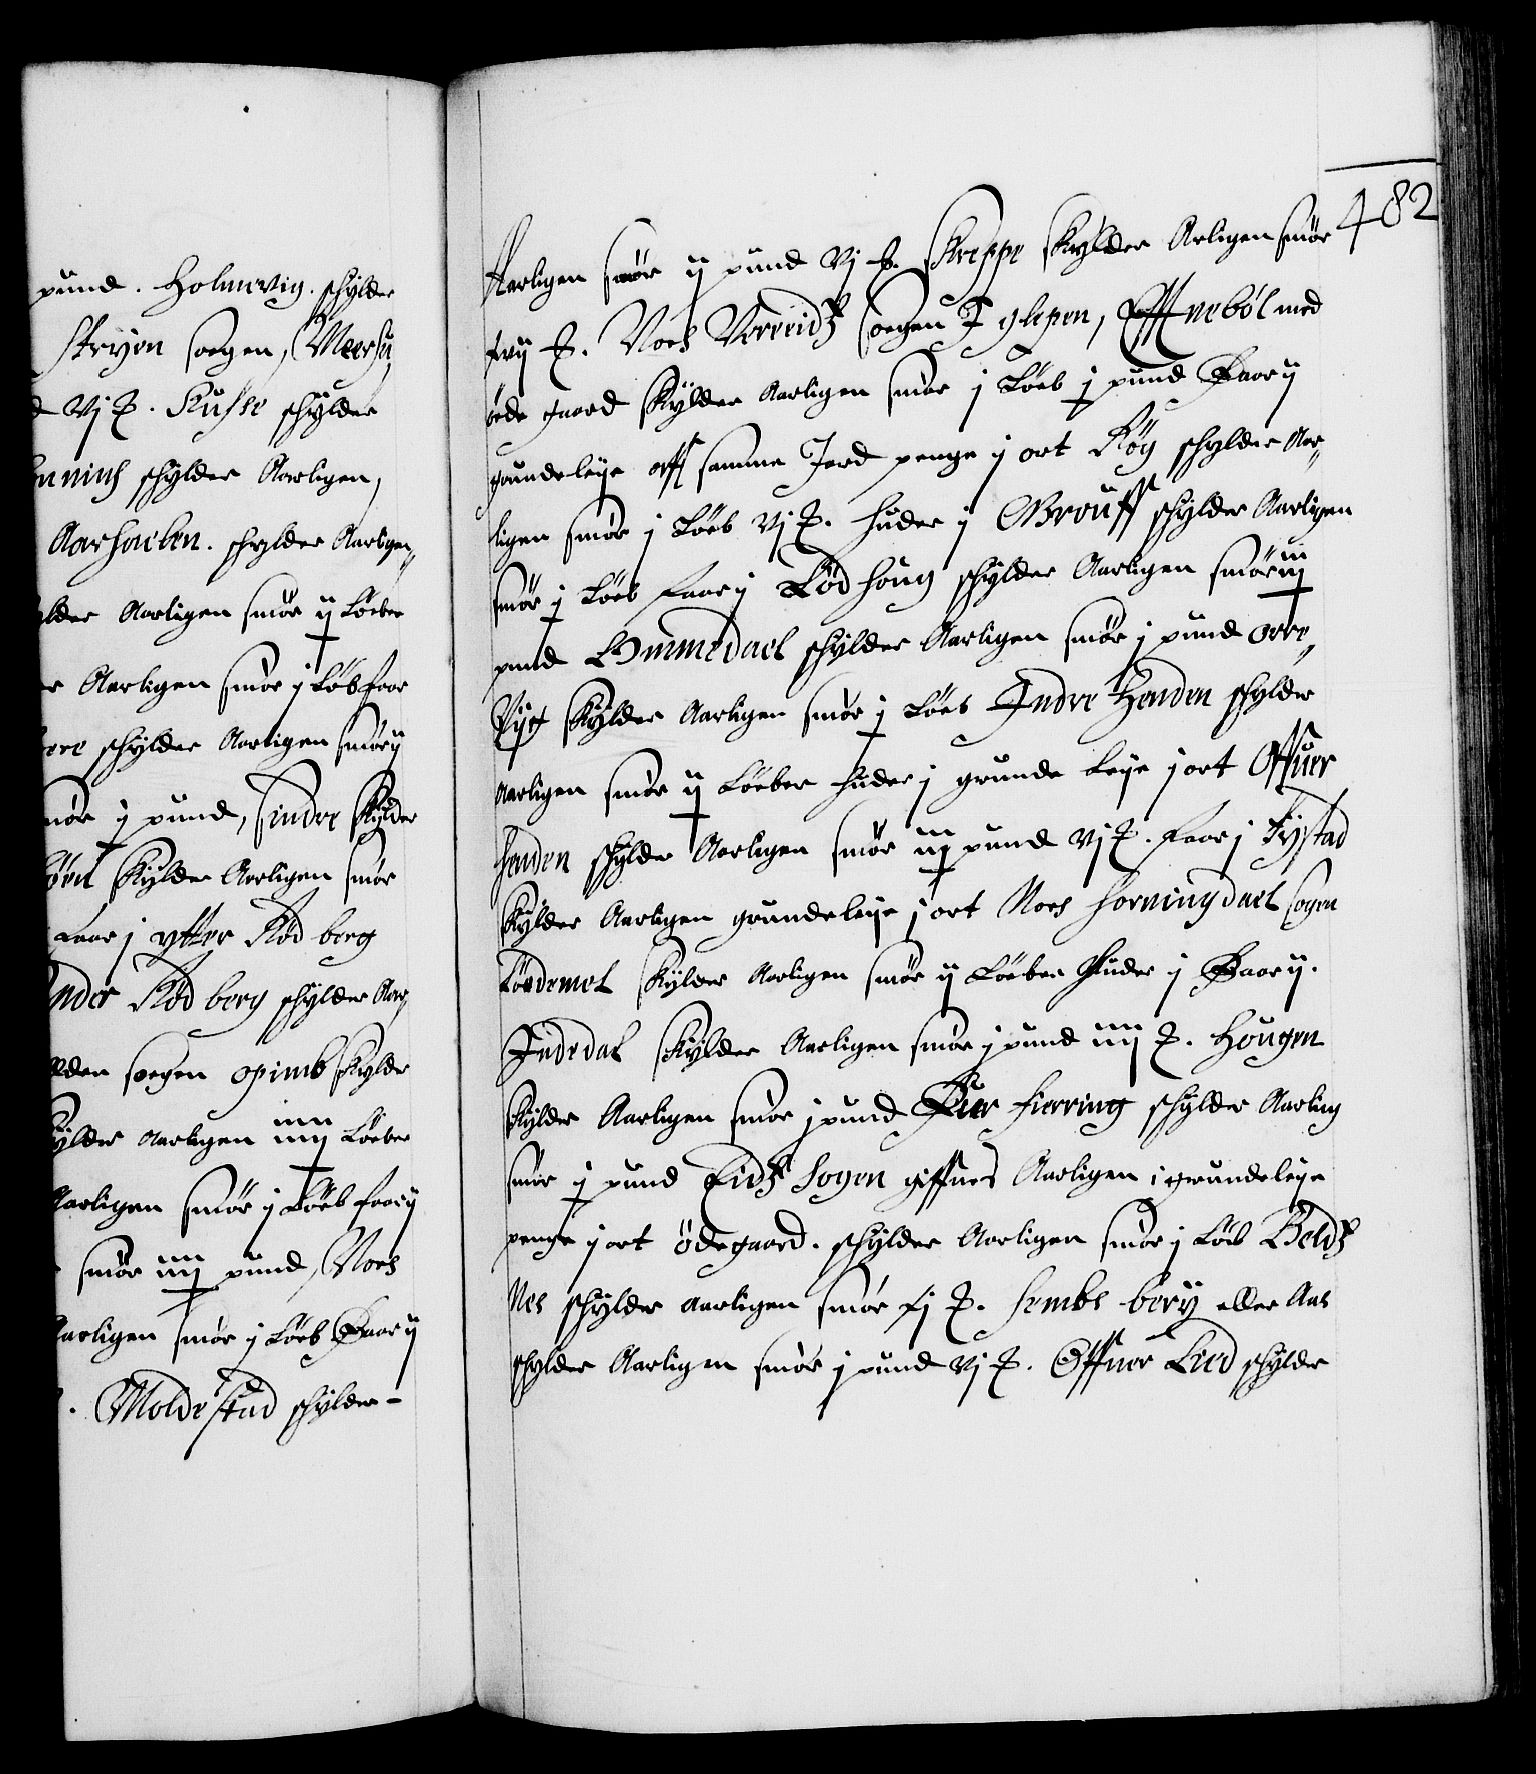 pund. Holmevig. schylder
Stryen soegen, Meersu
d Vj ℔. Kusse schylder
nnins schylder Aarligen,
Aarhaelen. schylder Aarligen
ylder Aarligen smör ij Löeber
r Aarligen smör j Löb faar
ere schylder Aarligen smör ij
mör j pund, Sindre Schylder
Schylder Aarligen smör
Faar j ytter Rödberg
nder Rödberg schylder Aar
lden soegen opimb schylder
ylder Aarligen iiij Löeber
Aarligen smör j Löeb faar ij
smör iiij pund, Noch
Aarligen smör j Löeb Faar ij
. Moldestad schylder
482
Aarligen smör ij pund Vj ℔. Skreppe Skylder Arligen smör
xvij ℔. Noch Verreidz soegen I glepen, Effneból med
öede gaard Skylder Aarligen smör j Löeb j pund Faar ij
grundeleje aff samme Jord penge j ort Rög schylder Aar
ligen smör j Löeb Vj ℔. huder j Brouff schylder Aarligen
smör j Löeb faar j Lödhoug schylder Aarligen smör iij
pund Ommedael schylder Aarligen smör j pund Orre
Vigt Skylder Aarligen smör j Löeb Indre Henden schylder
Aarligen smör ij Löeber huder j grunde Leje j ort Offuer
henden schylder Aarligen smör iij pund Vj ℔. faar j Tystad
Skylder Aarligen grundeleje j ort Noch horningdael sogen
Löedemel Skylder Aarligen smör ij Löeber Huder j Faar ij.
Indedal Skylder Aarligen smör j pund iiij ℔. Hougen
Skylder Aarligen smör j pund Fier fierring schylder Aarling
smör j pund Eidz sogen giffues Aarligen i grundeleje
penge j ort Ödegaard. schylder Aarligen smör j Löeb Beldz
Nes schylder aarligen smör xj ℔. sembs berg eller Aas
schylder Aarligen smör j pund Vj ℔. Offuer Lied schylder